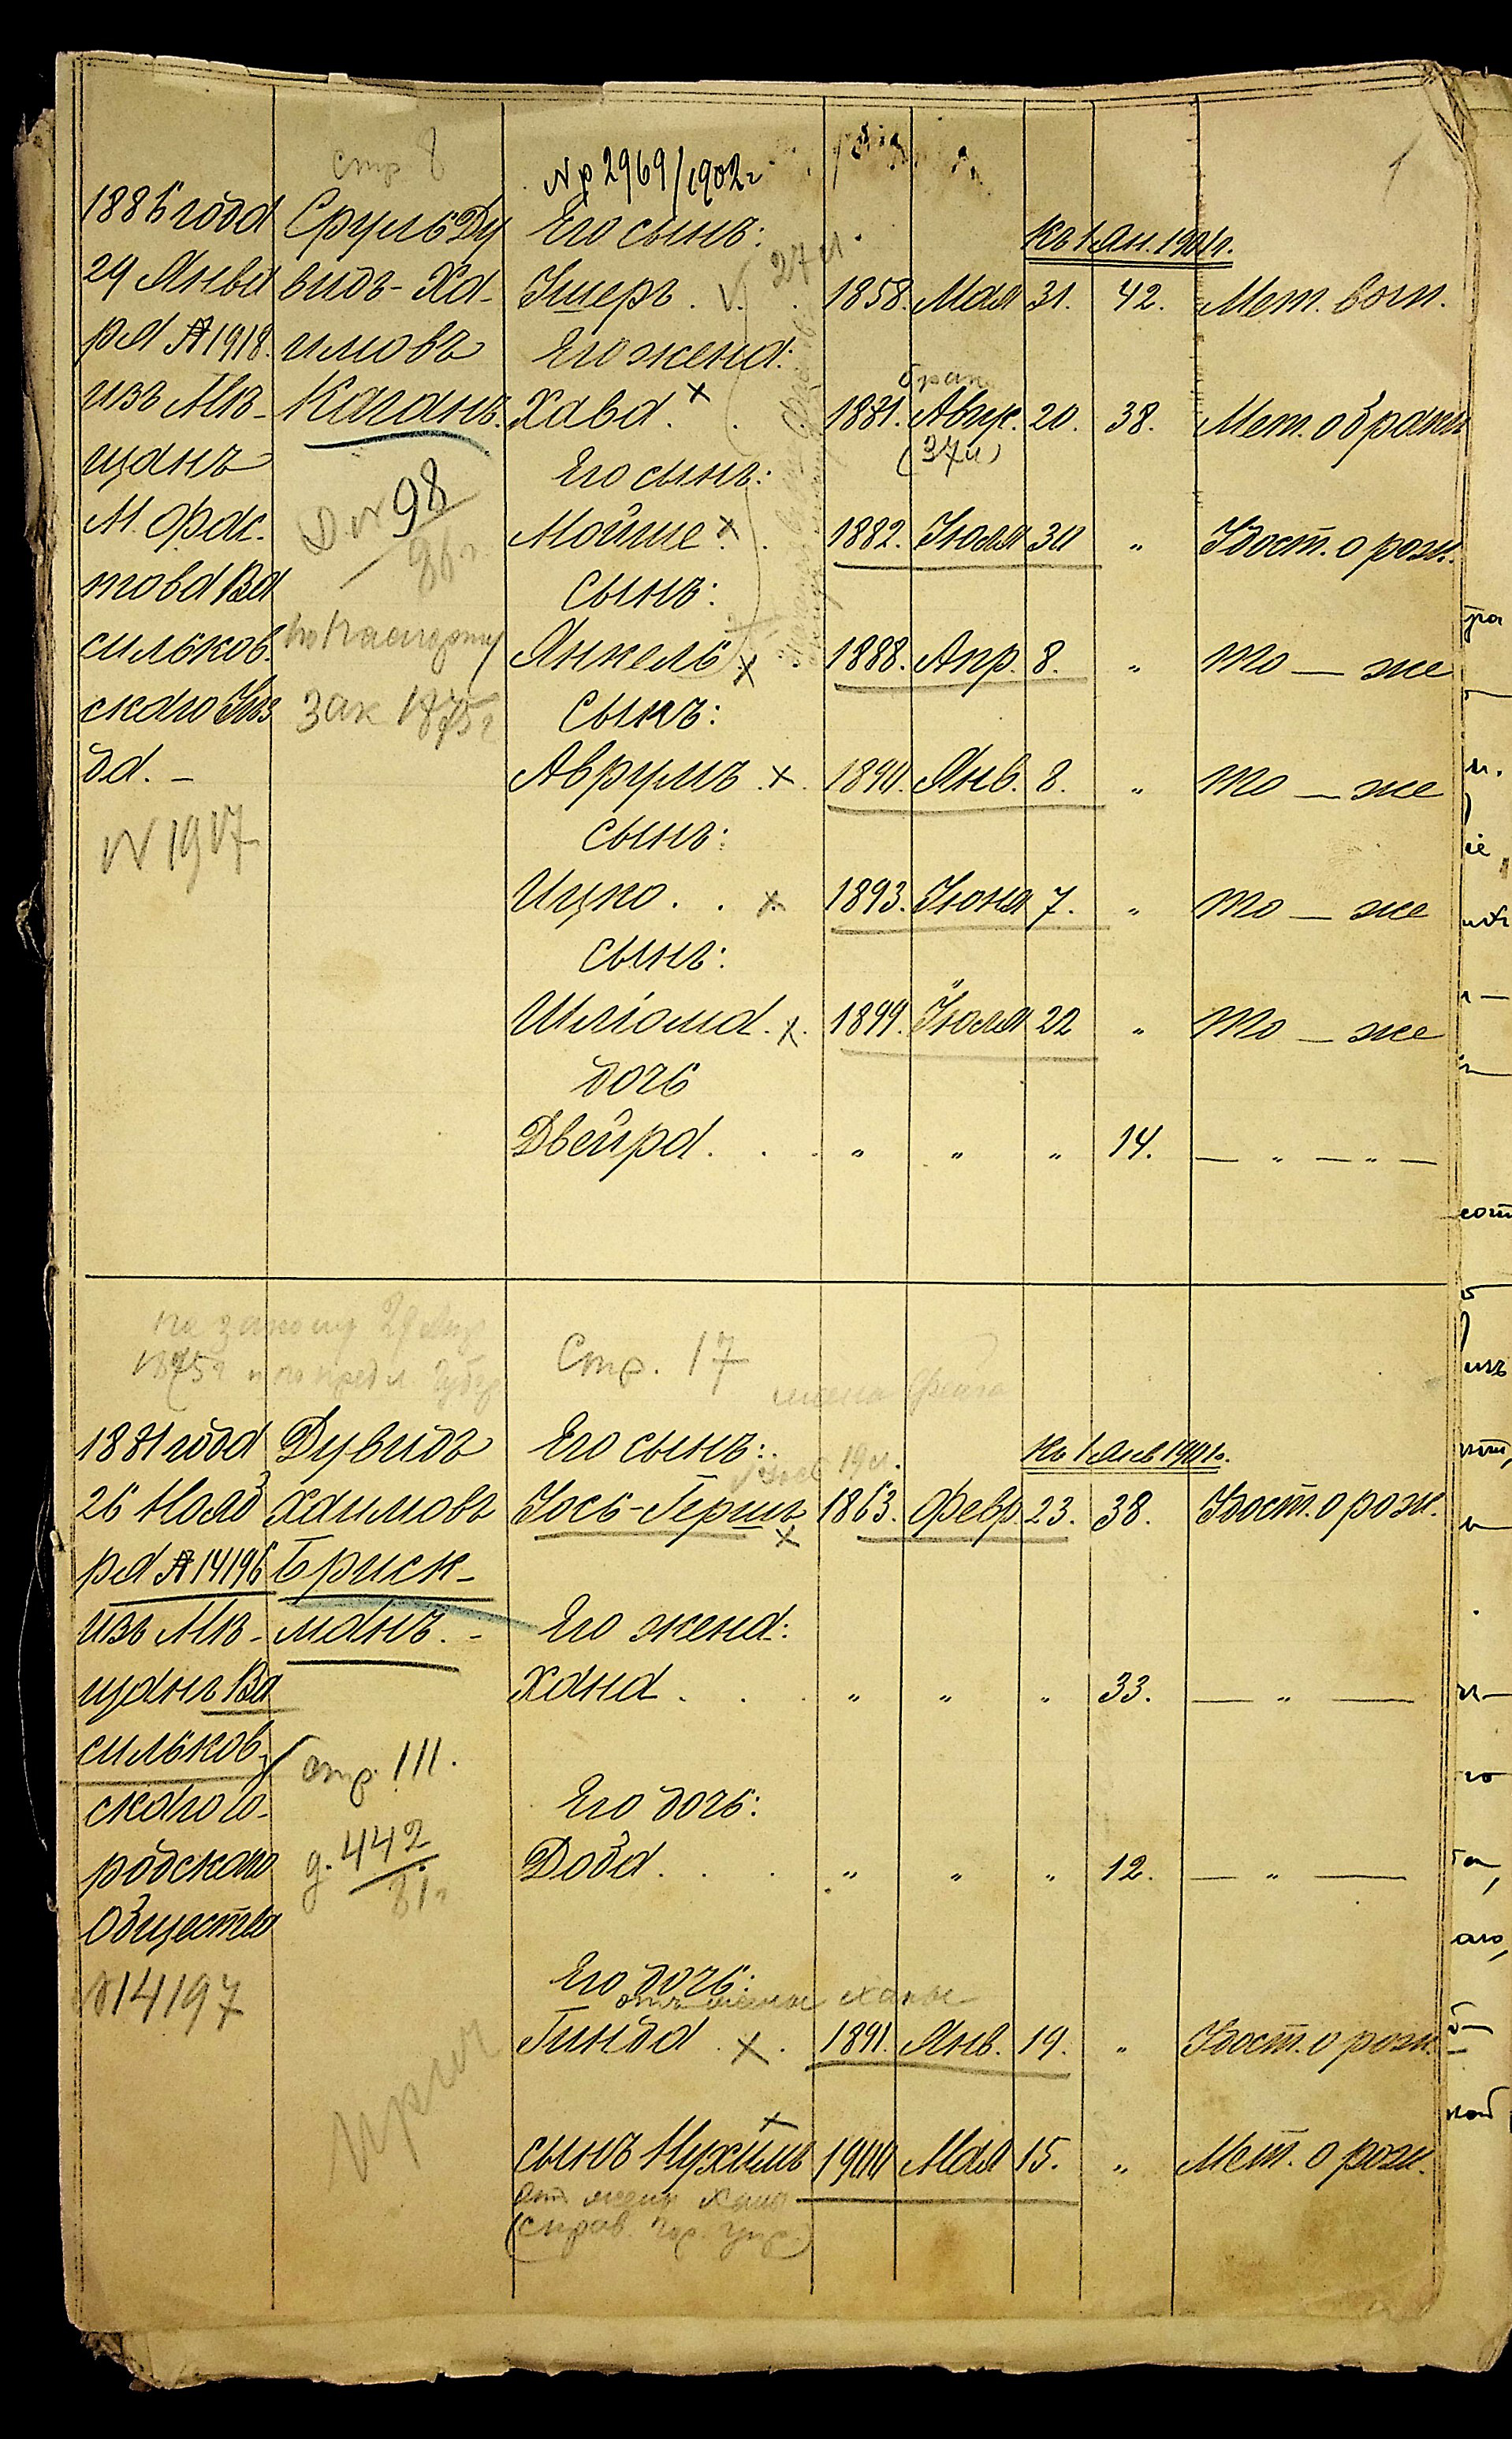 стр 8
№ 2969/1902 г
1
1886 года
29 Янва
ря №1918.
изъ Мѣ-
щанъ
М. Фас.
това Ва
сильков.
скаго Уѣз
да. —
N 1917
Сруль Ду
видъ-Ха-
имовъ
Каганъ.
Д. N 98
86 г.
по паспорту
зак 1875 г
Его сынъ:
27 л.
къ 1 Ян. 1901 г.
Ушеръ . . 1858. Мая 31. 42. Мет. вып.
Его жена:
брак.
Хава . . 1881. Авг. 20. 38. Мет. о бракѣ
(37 л)
Его сынъ:
Мойше . . 1882. Іюля 30 „ Удост. о рож.
сынъ:
Янкель . 1888. Апр. 8. „ То — же
сынъ:
Аврумъ . . 1890. Янв. 8. „ То — же
сынъ:
Ицко . . . 1893. Іюня 7. „ То — же
сынъ:
Шліома . . 1899. Іюля 22 „ То — же
дочь
Двейра . . . „ „ „ 14. — „ — „ —
по закону 29 Апр
1875 г и по предл. Губер
Стр. 17
жена Фейга
1881 года
26 Нояб
ря №14196
изъ Мѣ-
щанъ Ва
сильков-
скаго го-
родскаго
Общества
N14197
Дувидъ
Хаимовъ
Бриск-
манъ. -
стр. 111.
д. 442
81 г
Его сынъ:
19 л.
къ 1 Янв 1901 г.
Іось-Гершъ 1863. Февр. 23. 38. Удост. о рож.
Его жена:
Хана . . . „ „ „ 33. — „ —
Его дочь:
Доба . . . „ „ „ 12. — „ —
Его дочь:
отъ жены Ханы
Гинда . . 1891. Янв. 19. „ Удост. о рож.
сынъ Нухимъ 1900 Мая 15. „ Мет. о рож.
отъ жены Ханы
(справ. Гор. Упр.)